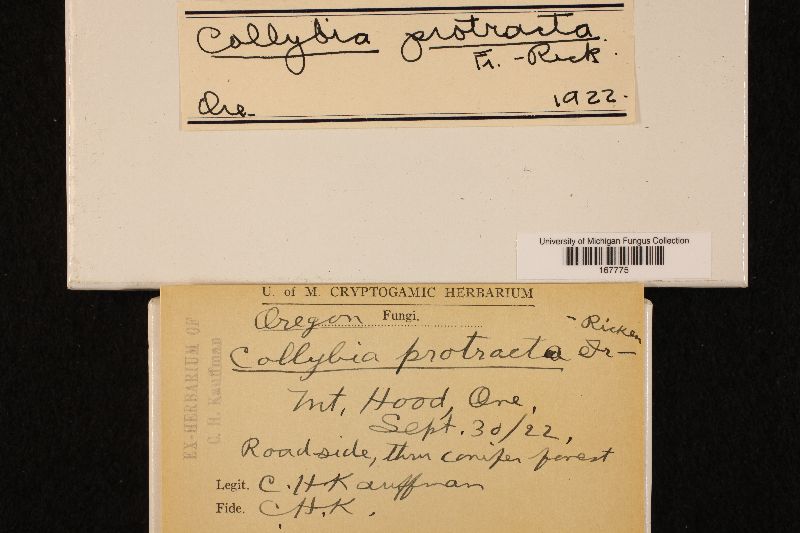 Collybia protracta.
Fr. - Rick.
Ore. 1922.
University of Michigan Fungus Collection
167775
U. of M. CRYPTOGAMIC HERBARIUM
Oregon Fungi.
- Ricken
Collybia protracta Fr-
Mt. Hood, Ore,
Sept. 30/22,
Roadside, thru conifer forest
Legit. C. H. Kauffman
Fide. C. H. K.
EX-HERBARIUM OF
C. H. Kauffman